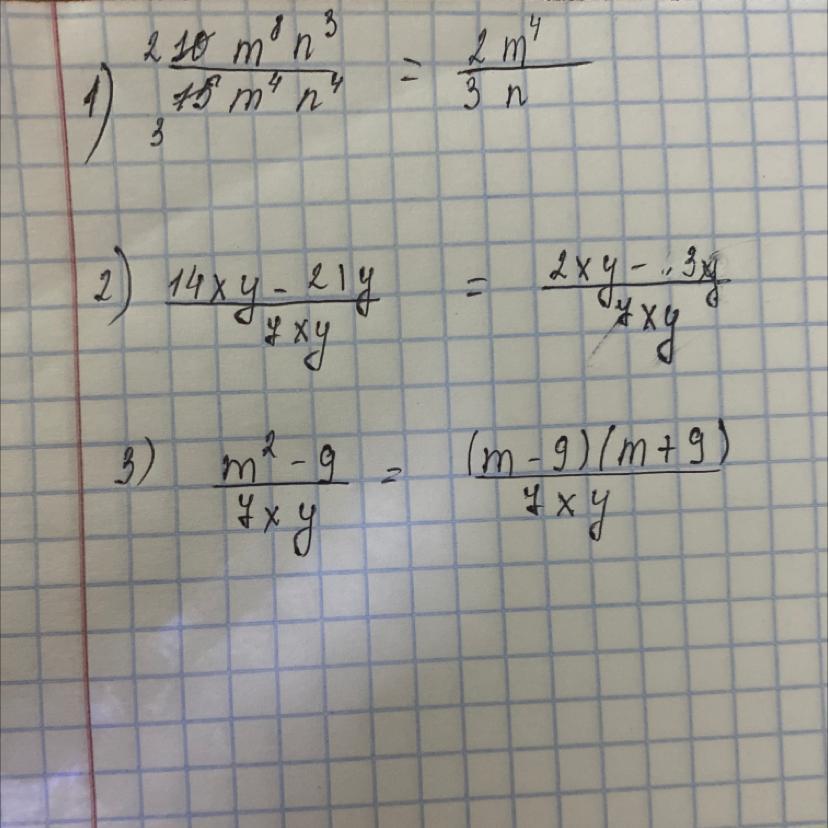 1) 2 10 m⁸ n³ / 3 15 m⁴ n⁴ = 2 m⁴ / 3 n
2) 14xy - 21y / 7xy = 2xy - 3xy / 7xy
3) m² - 9 / 7xy = (m - 9)(m + 9) / 7xy